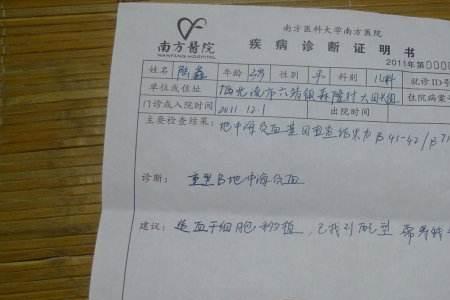 南方医科大学南方医院
南方醫院
NANFANG HOSPITAL
疾病诊断证明书
2011年第0000
姓名 陈鑫 年龄 3岁 性别 科别 儿科 就诊ID号
单位或住址 市六 镇 村 住院病案号
门诊或入院时间 2011.12.1 出院时间
主要检查结果: 地中海贫血基因检查结果为β41-42/β
诊断: 重型β地中海贫血
建议: 造血干细胞移植,已找到配型